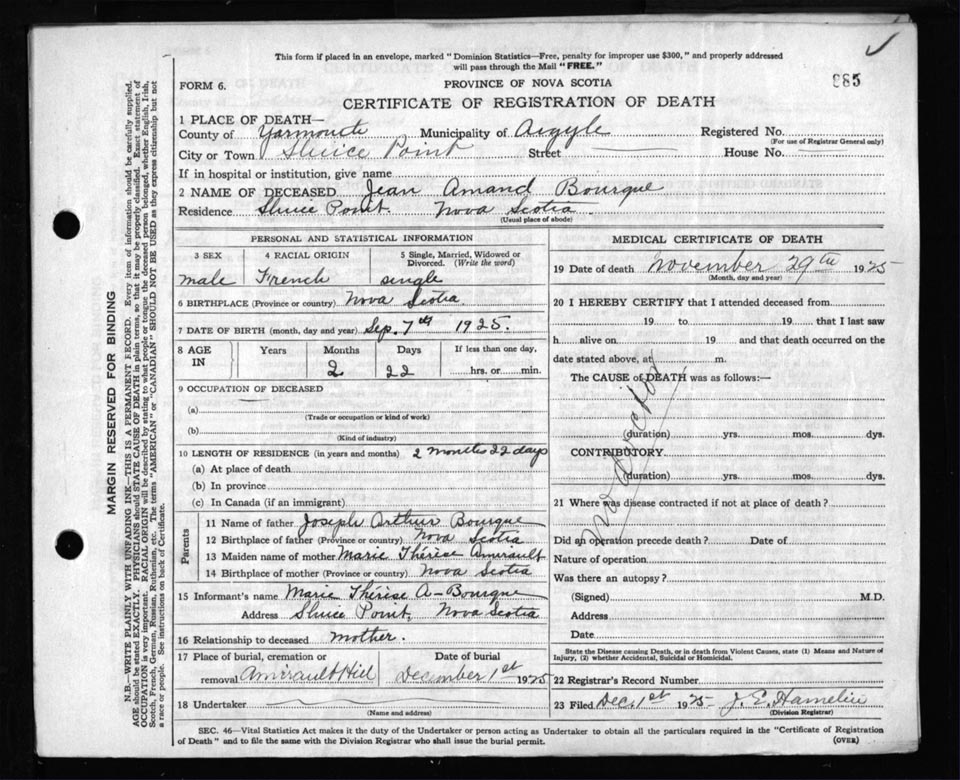 This form if placed in an envelope, marked "Dominion Statistics—Free, penalty for improper use $300," and properly addressed
will pass through the Mail "FREE."
FORM 6.
PROVINCE OF NOVA SCOTIA
885
CERTIFICATE OF REGISTRATION OF DEATH
1 PLACE OF DEATH—
County of Yarmouth Municipality of Argyle Registered No.
(For use of Registrar General only)
City or Town Sluice Point Street House No.
If in hospital or institution, give name
2 NAME OF DECEASED Jean Amand Bourque
Residence Sluice Point. Nova Scotia
(Usual place of abode)
PERSONAL AND STATISTICAL INFORMATION
3 SEX 4 RACIAL ORIGIN 5 Single, Married, Widowed or
Divorced. (Write the word)
male French single
6 BIRTHPLACE (Province or country) Nova Scotia.
7 DATE OF BIRTH (month, day and year) Sep. 7th 1925.
8 AGE IN Years Months Days If less than one day,
2 22 hrs. or min.
9 OCCUPATION OF DECEASED
(a)
(Trade or occupation or kind of work)
(b)
(Kind of industry)
10 LENGTH OF RESIDENCE (in years and months) 2 months 22 days
(a) At place of death
(b) In province
(c) In Canada (if an immigrant)
Parents
11 Name of father Joseph Arthur Bourque
12 Birthplace of father (Province or country) Nova Scotia
13 Maiden name of mother Marie Thérèse Amirault
14 Birthplace of mother (Province or country) Nova Scotia
15 Informant's name Marie Thérèse A- Bourque
Address Sluice Point, Nova Scotia
16 Relationship to deceased mother.
17 Place of burial, cremation or Date of burial
removal Amirault Hill December 1st 1925
18 Undertaker
(Name and address)
MEDICAL CERTIFICATE OF DEATH
19 Date of death November 29th 1925
(Month, day and year)
20 I HEREBY CERTIFY that I attended deceased from
19 to 19 that I last saw
h alive on 19 and that death occurred on the
date stated above, at m.
The CAUSE of DEATH was as follows:—
no doctor
(duration) yrs. mos. dys.
CONTRIBUTORY
(duration) yrs. mos. dys.
21 Where was disease contracted if not at place of death?
Did an operation precede death? Date of
Nature of operation
Was there an autopsy?
(Signed) M.D.
Address
Date
State the Disease causing Death, or in death from Violent Causes, state (1) Means and Nature of
Injury, (2) whether Accidental, Suicidal or Homicidal.
22 Registrar's Record Number
23 Filed Dec. 1st 1925 J. E. Hamelin
(Division Registrar)
SEC. 46—Vital Statistics Act makes it the duty of the Undertaker or person acting as Undertaker to obtain all the particulars required in the "Certificate of Registration
of Death" and to file the same with the Division Registrar who shall issue the burial permit.
(OVER)
MARGIN RESERVED FOR BINDING
N.B.—WRITE PLAINLY WITH UNFADING INK—THIS IS A PERMANENT RECORD. Every item of information should be carefully supplied.
AGE should be stated EXACTLY. PHYSICIANS should STATE CAUSE OF DEATH in plain terms, so that it may be properly classified. Exact statement of
OCCUPATION is very important. RACIAL ORIGIN will be described by stating to what people or tongue the deceased person belonged, whether English, Irish,
Scotch, French, German, Russian, Ruthenian, etc. The terms "AMERICAN" or "CANADIAN" SHOULD NOT BE USED as they express citizenship but not
a race or people. See instructions on back of Certificate.